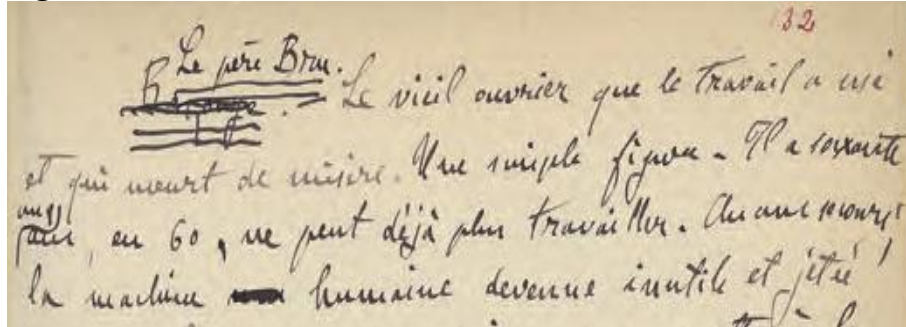 32
Le père Bru. Le vieil ouvrier que le travail a usé
et qui meurt de misère. Une simple figure. Il a soixante
ans, en 60, ne peut déjà plus travailler. Aucun secours!
la machine humaine devenue inutile et jetée!